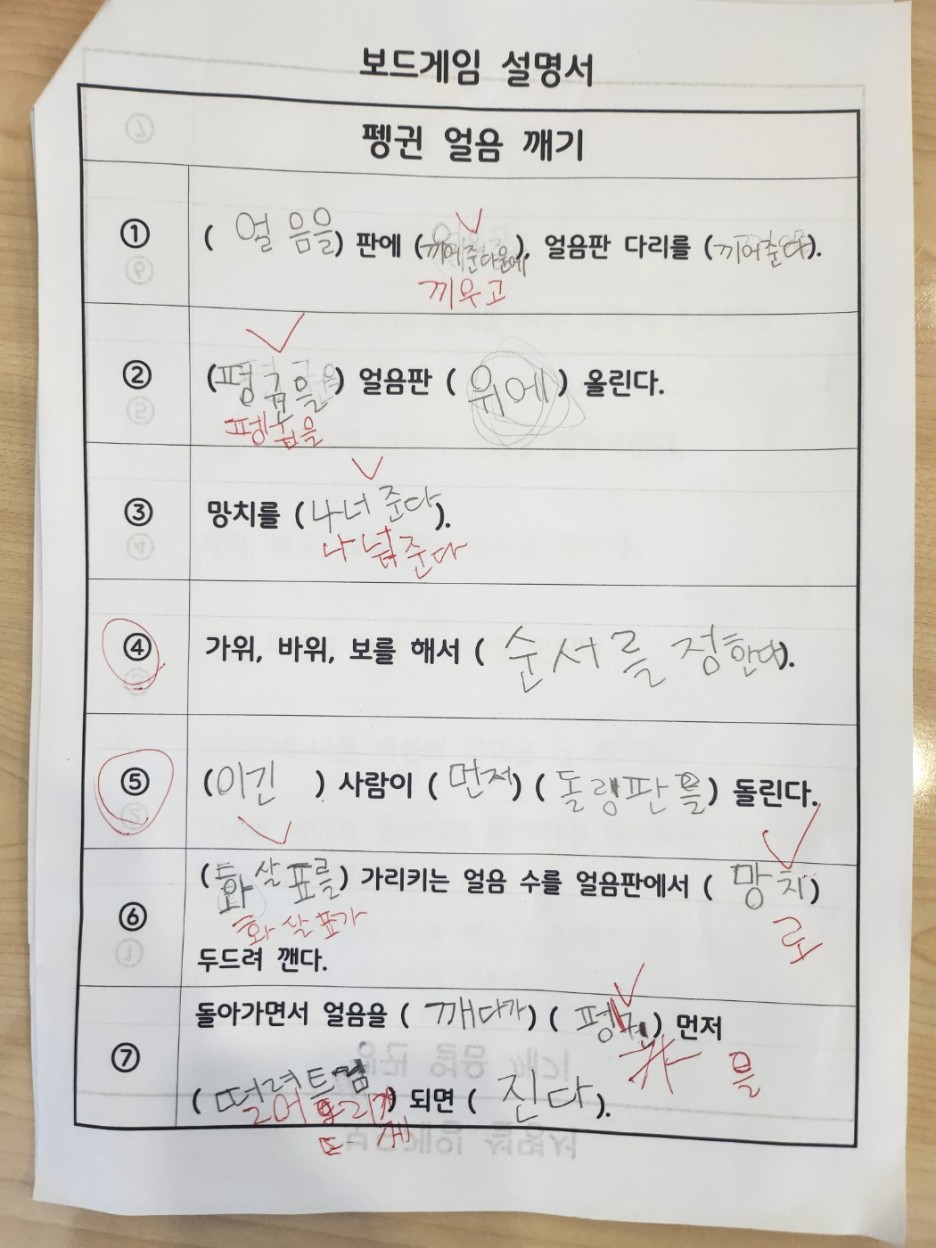 보드게임 설명서
펭귄 얼음 깨기
① ( 얼음을 ) 판에 ( 끼어준다음에 ), 얼음판 다리를 ( 끼어준다 ).
끼우고
② ( ) 얼음판 ( 위에 ) 올린다.
③ 망치를 ( 나너 준다 ).
나눠 준다
④ 가위, 바위, 보를 해서 ( 순서를 정한다 ).
⑤ ( 이긴 ) 사람이 ( 먼저 ) ( 돌림판을 ) 돌린다.
⑥ ( 화살표를 ) 가리키는 얼음 수를 얼음판에서 ( 망치 )
화살표가 로
두드려 깬다.
⑦ 돌아가면서 얼음을 ( 깨다가 ) ( ) 먼저
을
( ) 되면 ( 진다 ).